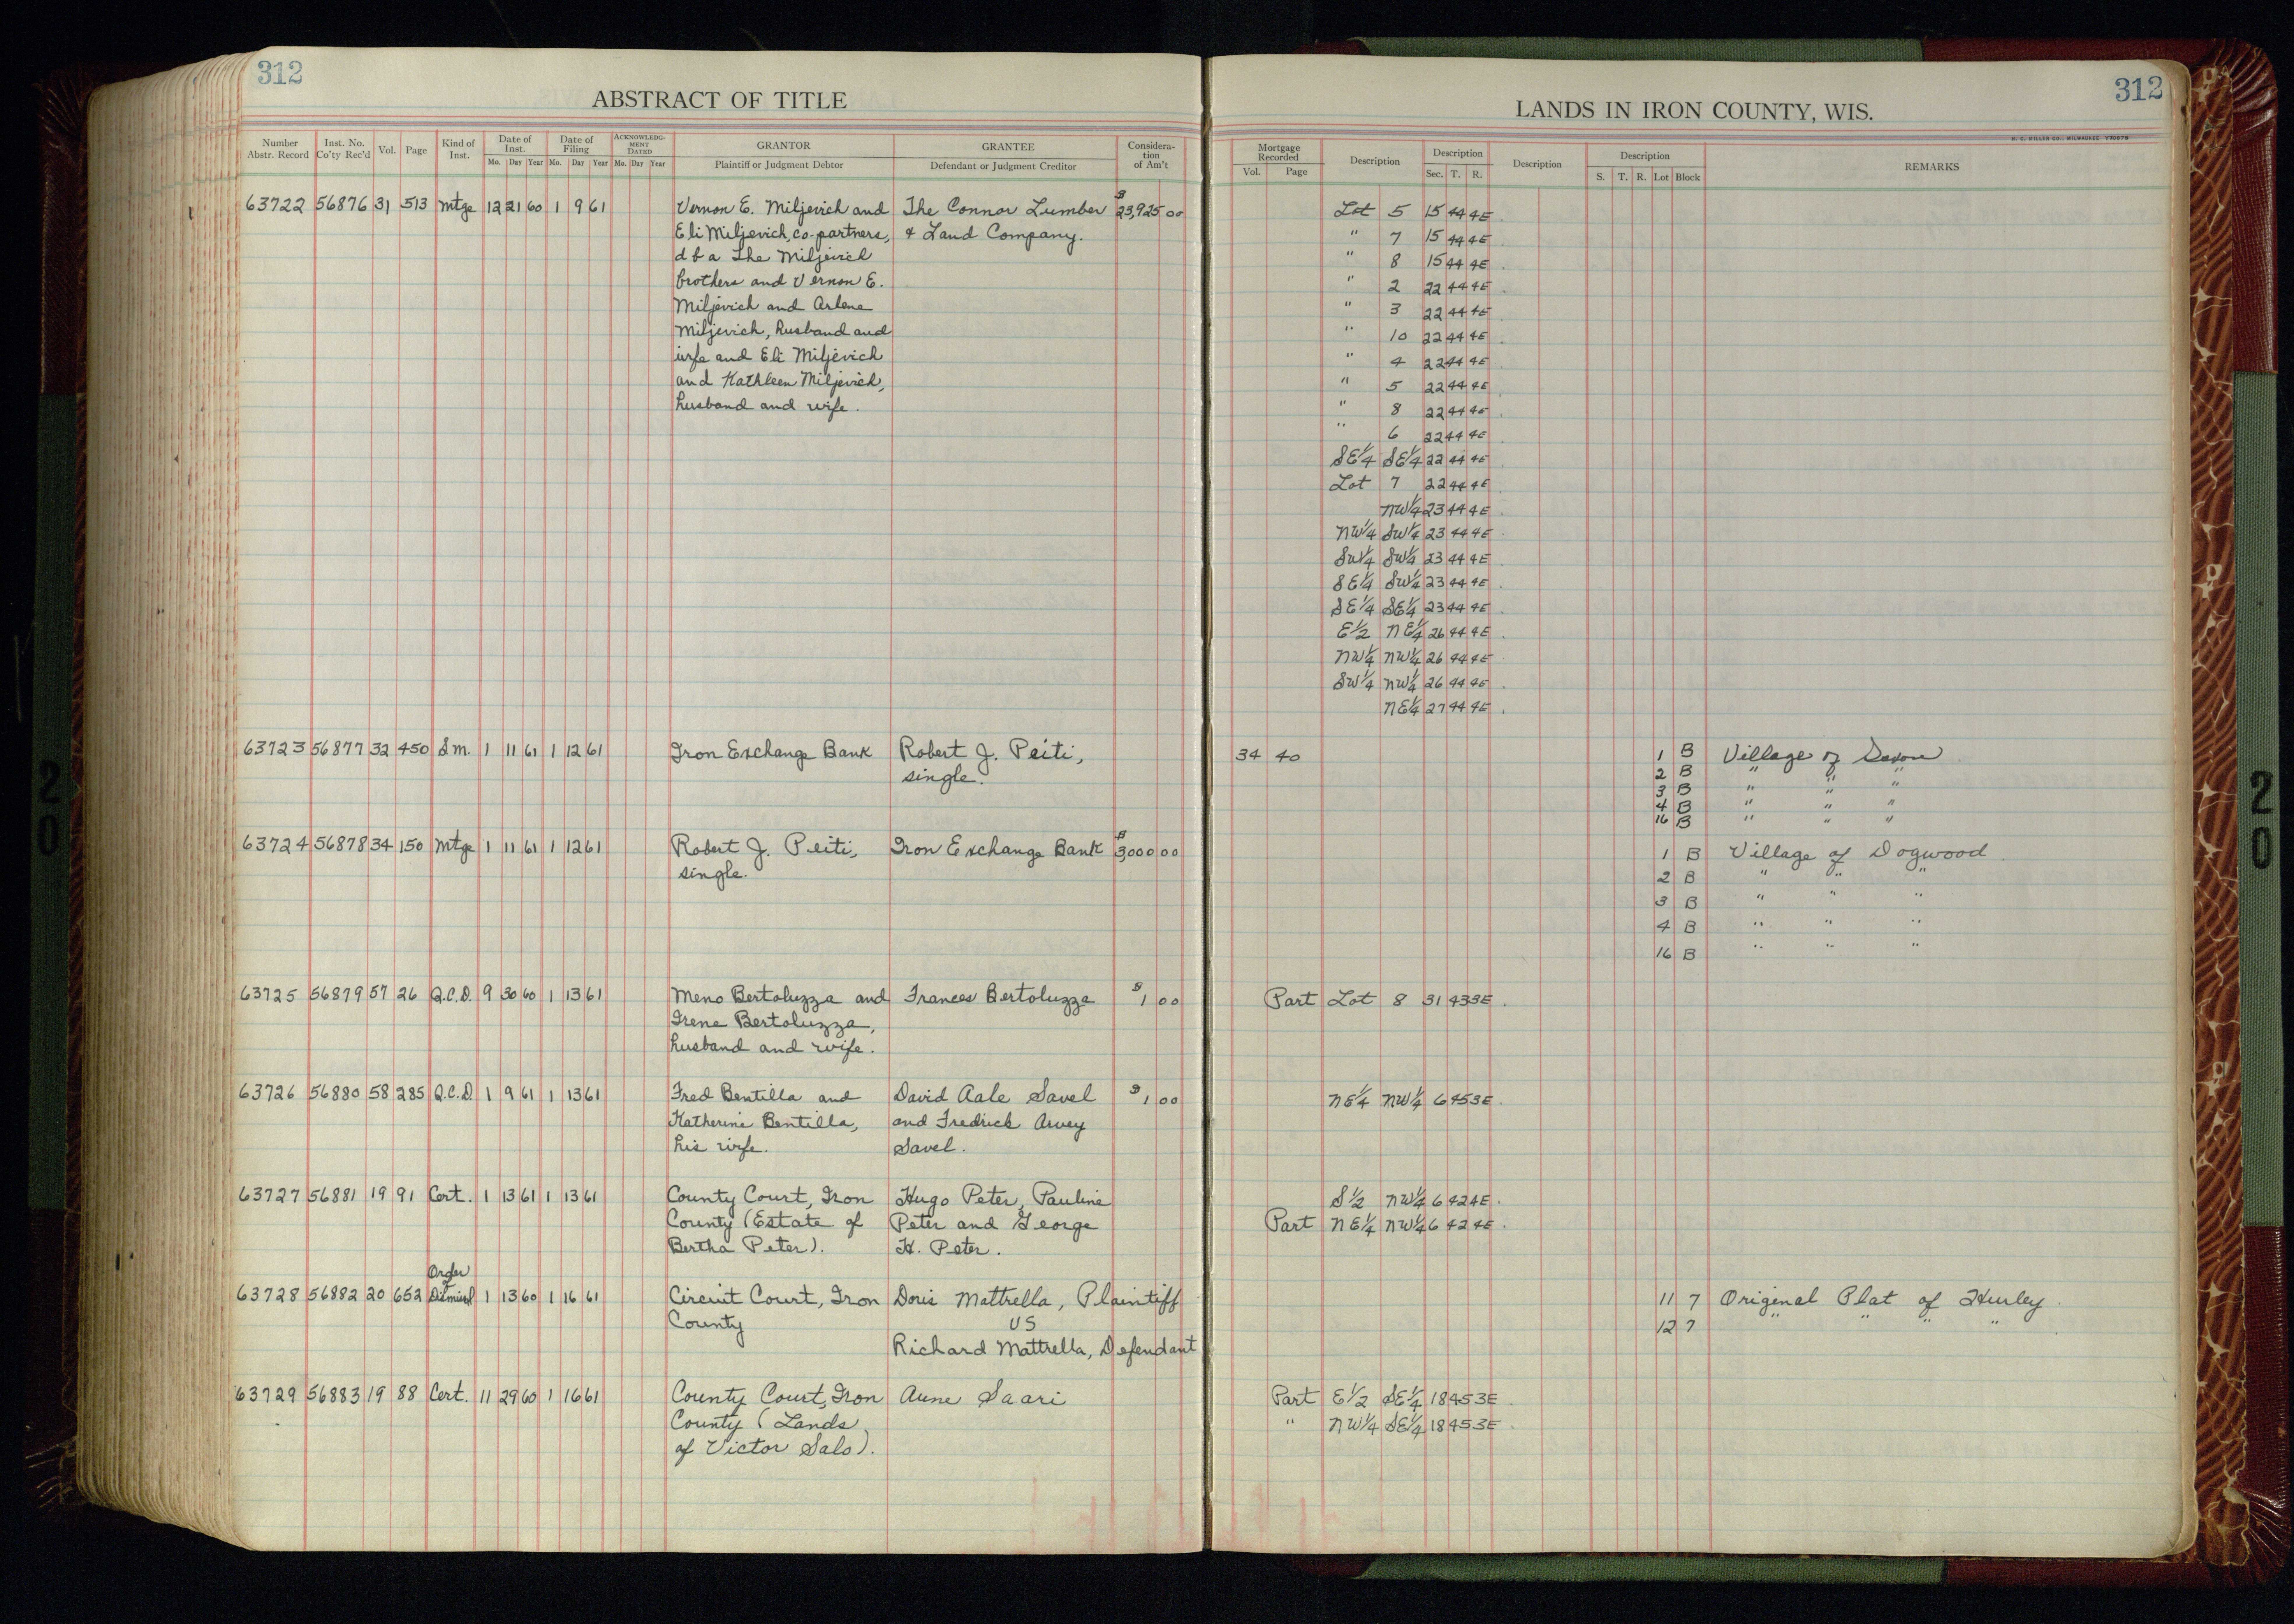 312
ABSTRACT OF TITLE
Number Abstr. Record | Inst. No. Co'ty Rec'd | Vol. | Page | Kind of Inst. | Date of Inst. Mo. Day Year | Date of Filing Mo. Day Year | ACKNOWLEDGMENT DATED Mo. Day Year | GRANTOR Plaintiff or Judgment Debtor | GRANTEE Defendant or Judgment Creditor | Consideration of Am't
63722 56876 31 513 Mtge 12 21 60 1 9 61 Vernon E. Miljevich and The Connor Lumber $23,925 00
Eli Miljevich, co-partners, & Land Company.
d b a The Miljevich
brothers and Vernon E.
Miljevich and Arlene
Miljevich, husband and
wife and Eli Miljevich
and Kathleen Miljevich,
husband and wife.
63723 56877 32 450 S.m. 1 11 61 1 12 61 Iron Exchange Bank Robert J. Peiti,
single.
63724 56878 34 150 Mtge 1 11 61 1 12 61 Robert J. Peiti, Iron Exchange Bank $3,000 00
single.
63725 56879 57 26 Q.C.D. 9 30 60 1 13 61 Meno Bertoluzza and Frances Bertoluzza $1 00
Irene Bertoluzza,
husband and wife.
63726 56880 58 285 Q.C.D. 1 9 61 1 13 61 Fred Bentilla and David Aale Savel $1 00
Katherine Bentilla, and Fredrick Arvey
his wife. Savel.
63727 56881 19 91 Cert. 1 13 61 1 13 61 County Court, Iron Hugo Peter, Pauline
County (Estate of Peter and George
Bertha Peter). H. Peter.
Order
of
63728 56882 20 652 Dismissl 1 13 60 1 16 61 Circuit Court, Iron Doris Mattrella, Plaintiff
County VS
Richard Mattrella, Defendant
63729 56883 19 88 Cert. 11 29 60 1 16 61 County Court, Iron Aune Saari
County (Lands
of Victor Salo).
312
LANDS IN IRON COUNTY, WIS.
H. C. MILLER CO., MILWAUKEE
Mortgage Recorded Vol. Page | Description | Description Sec. T. R. | Description | Description S. T. R. Lot Block | REMARKS
Lot 5 15 44 4E
" 7 15 44 4E
" 8 15 44 4E
" 2 22 44 4E
" 3 22 44 4E
" 10 22 44 4E
" 4 22 44 4E
" 5 22 44 4E
" 8 22 44 4E
" 6 22 44 4E
SE1/4 SE1/4 22 44 4E
Lot 7 22 44 4E
NW1/4 23 44 4E
NW1/4 SW1/4 23 44 4E
SW1/4 SW1/4 23 44 4E
SE1/4 SW1/4 23 44 4E
SE1/4 SE1/4 23 44 4E
E1/2 NE1/4 26 44 4E
NW1/4 NW1/4 26 44 4E
SW1/4 NW1/4 26 44 4E
NE1/4 27 44 4E
34 40 1 B Village of Saxon
2 B " " "
3 B " " "
4 B " " "
16 B " " "
1 B Village of Dogwood
2 B " " "
3 B " " "
4 B " " "
16 B " " "
Part Lot 8 31 43 3E
NE1/4 NW1/4 6 45 3E
S1/2 NW1/4 6 42 4E
Part NE1/4 NW1/4 6 42 4E
11 7 Original Plat of Hurley
12 7 " " " "
Part E1/2 SE1/4 18 45 3E
" NW1/4 SE1/4 18 45 3E
20
20